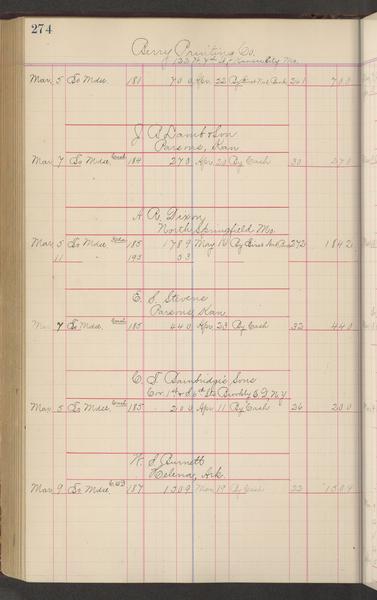 274
Berry Printing Co.
Mar 5 To Mdse. 181 7 0 0 Apr 22 By First Nat Bank 261 7 0 0
J B Lamb & Son
Parsons, Kan
Mar 7 To Mdse. Cash 184 2 7 0 Apr 20 By Cash 30 2 7 0
A. R. Dixon
North Springfield Mo.
Mar 5 To Mdse. 185 17 8 9 May 16 By First Nat Bank 272 18 4 2
11 195 5 3
E. S. Stevens
Parsons, Kan.
Mar 7 To Mdse. Cash 185 4 4 0 Apr 23 By Cash 32 4 4 0
C. T. Bainbridge's Sons
Cor. 1st & So 6th Sts Brooklyn E.D., N.Y.
Mar 5 To Mdse. Cash 185 2 0 0 Apr 11 By Cash 26 2 0 0
W. S. Burnett
Helena, Ark.
Mar 9 To Mdse C.O.D 187 13 0 9 Mar 19 By Cash 22 13 0 9